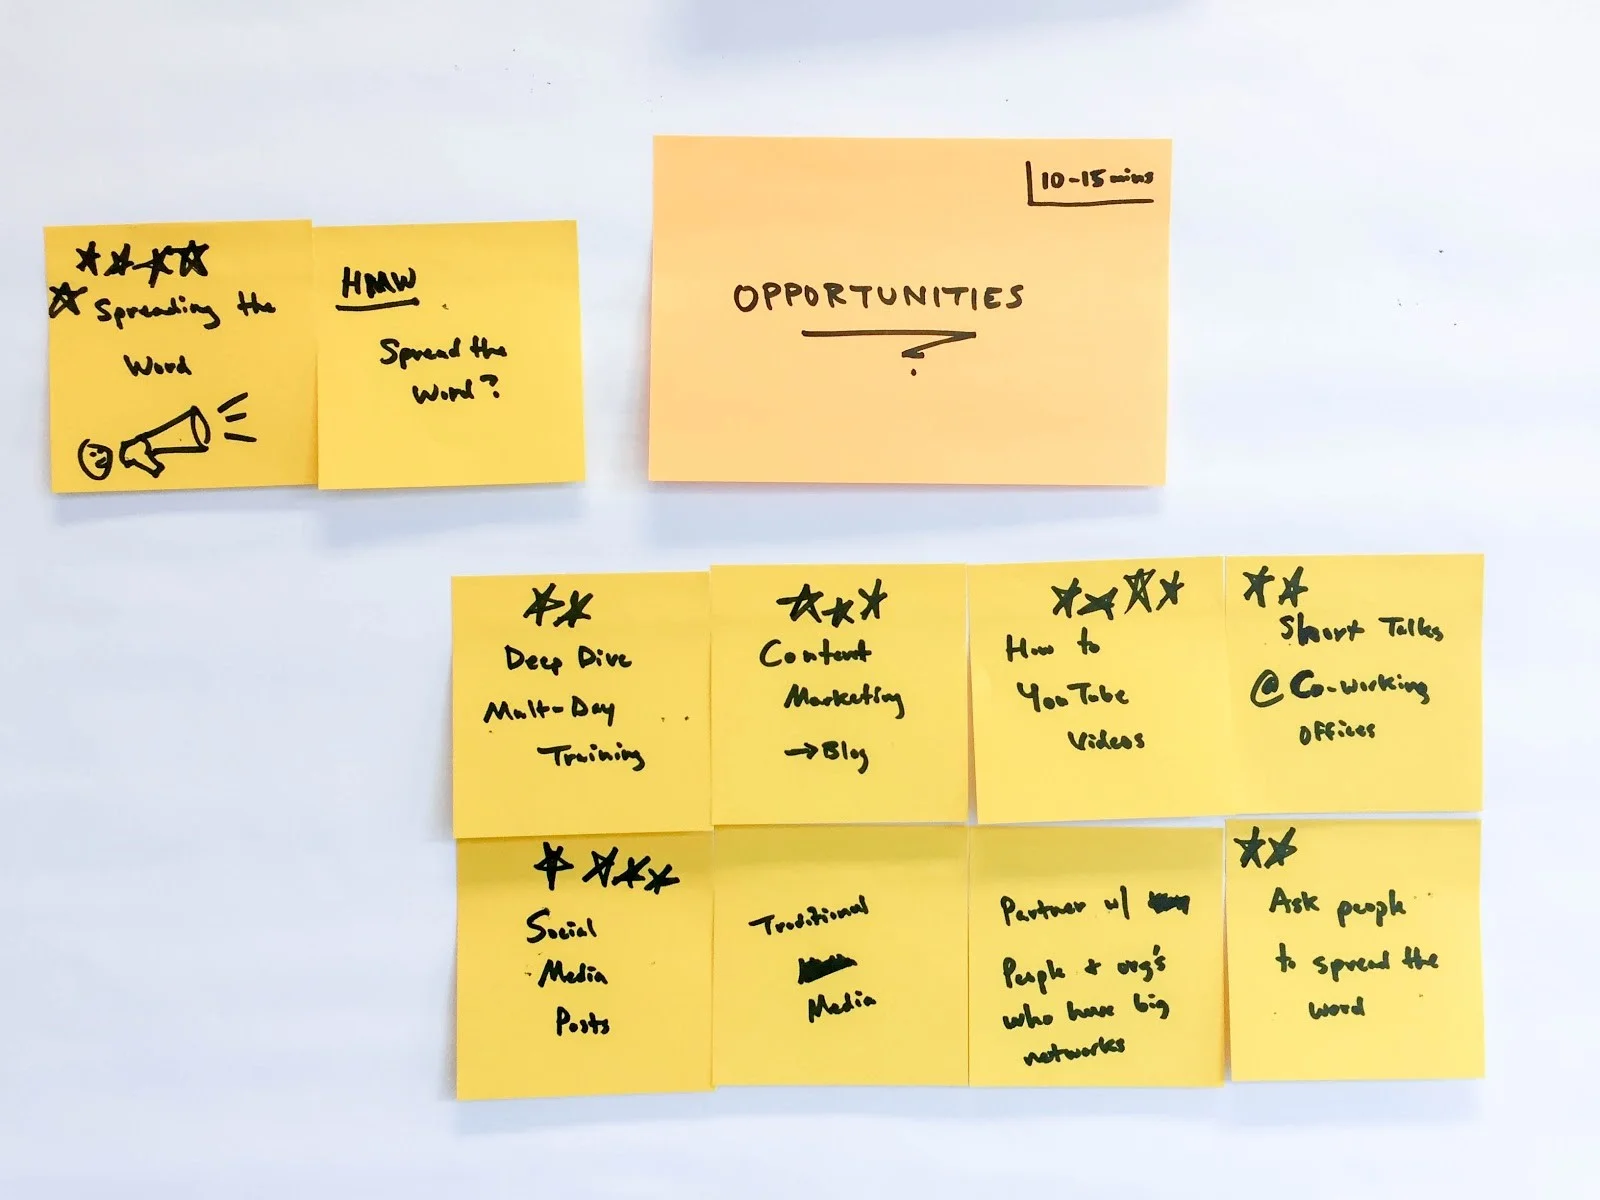 Spreading the
Word
HMW
Spread the
Word?
10-15 mins
OPPORTUNITIES
Deep Dive
Multi-Day
Training
Content
Marketing
→Blog
How to
YouTube
Videos
Short Talks
@ Co-working
offices
Social
Media
Posts
Traditional
Media
Partner w/
People & org's
who have big
networks
Ask people
to spread the
word